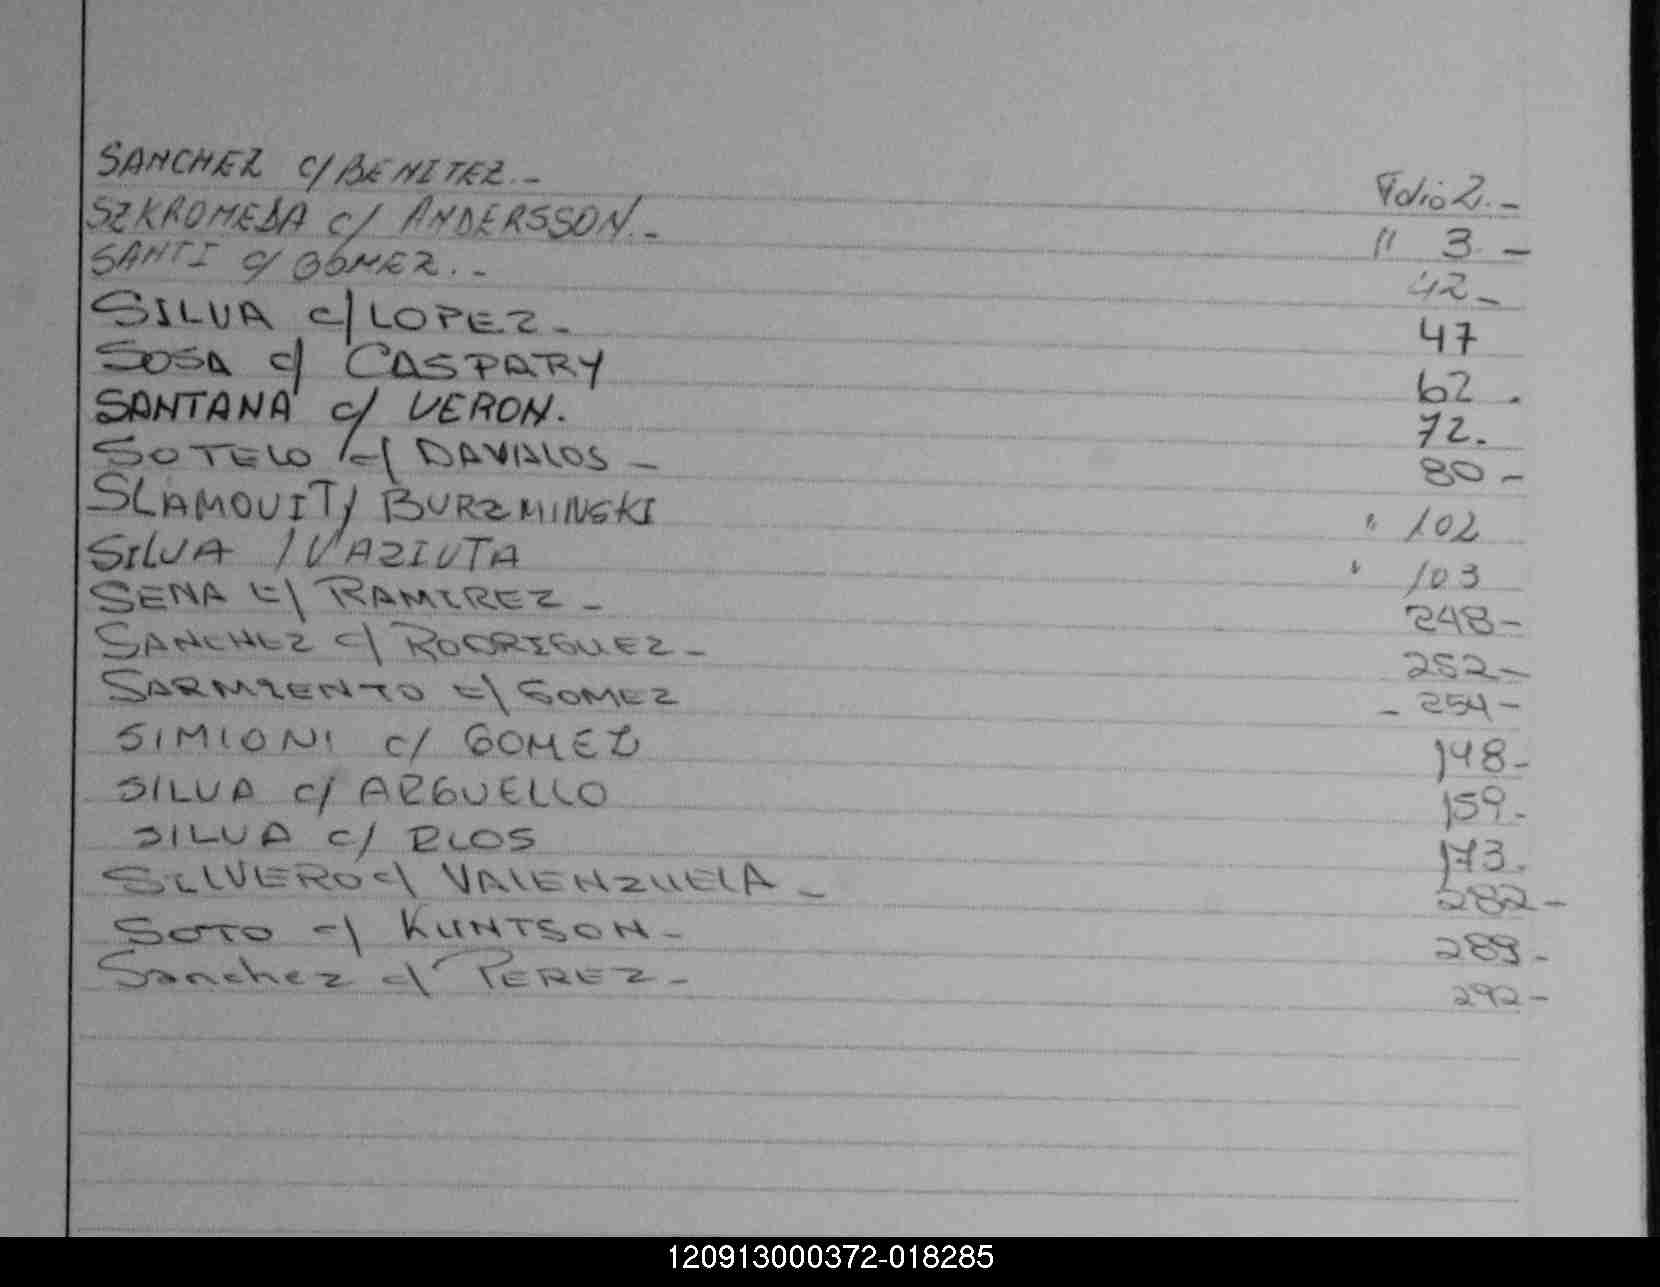 SANCHEZ c/ BENITEZ.- Folio 2.-
SZKROMEDA c/ ANDERSSON.- " 3 -
SANTI c/ GOMEZ.- 42-
SILVA c/ LOPEZ- 47
SOSA c/ CASPARY 62.
SANTANA c/ VERON. 72.
SOTELO c/ DAVALOS - 80-
SLAMOVIT/ BURZMINSKI " 102
SILVA / VAZIUTA " 103
SENA c/ RAMIREZ - 248-
SANCHEZ c/ RODRIGUEZ- 252-
SARMIENTO c/ GOMEZ - 254-
SIMIONI c/ GOMEZ 148-
SILVA c/ ARGUELLO 159.
SILVA c/ RIOS 173.
SILVERO c/ VALENZUELA - 282-
SOTO c/ KUNTSON- 289-
Sanchez c/ PEREZ- 292-
120913000372-018285